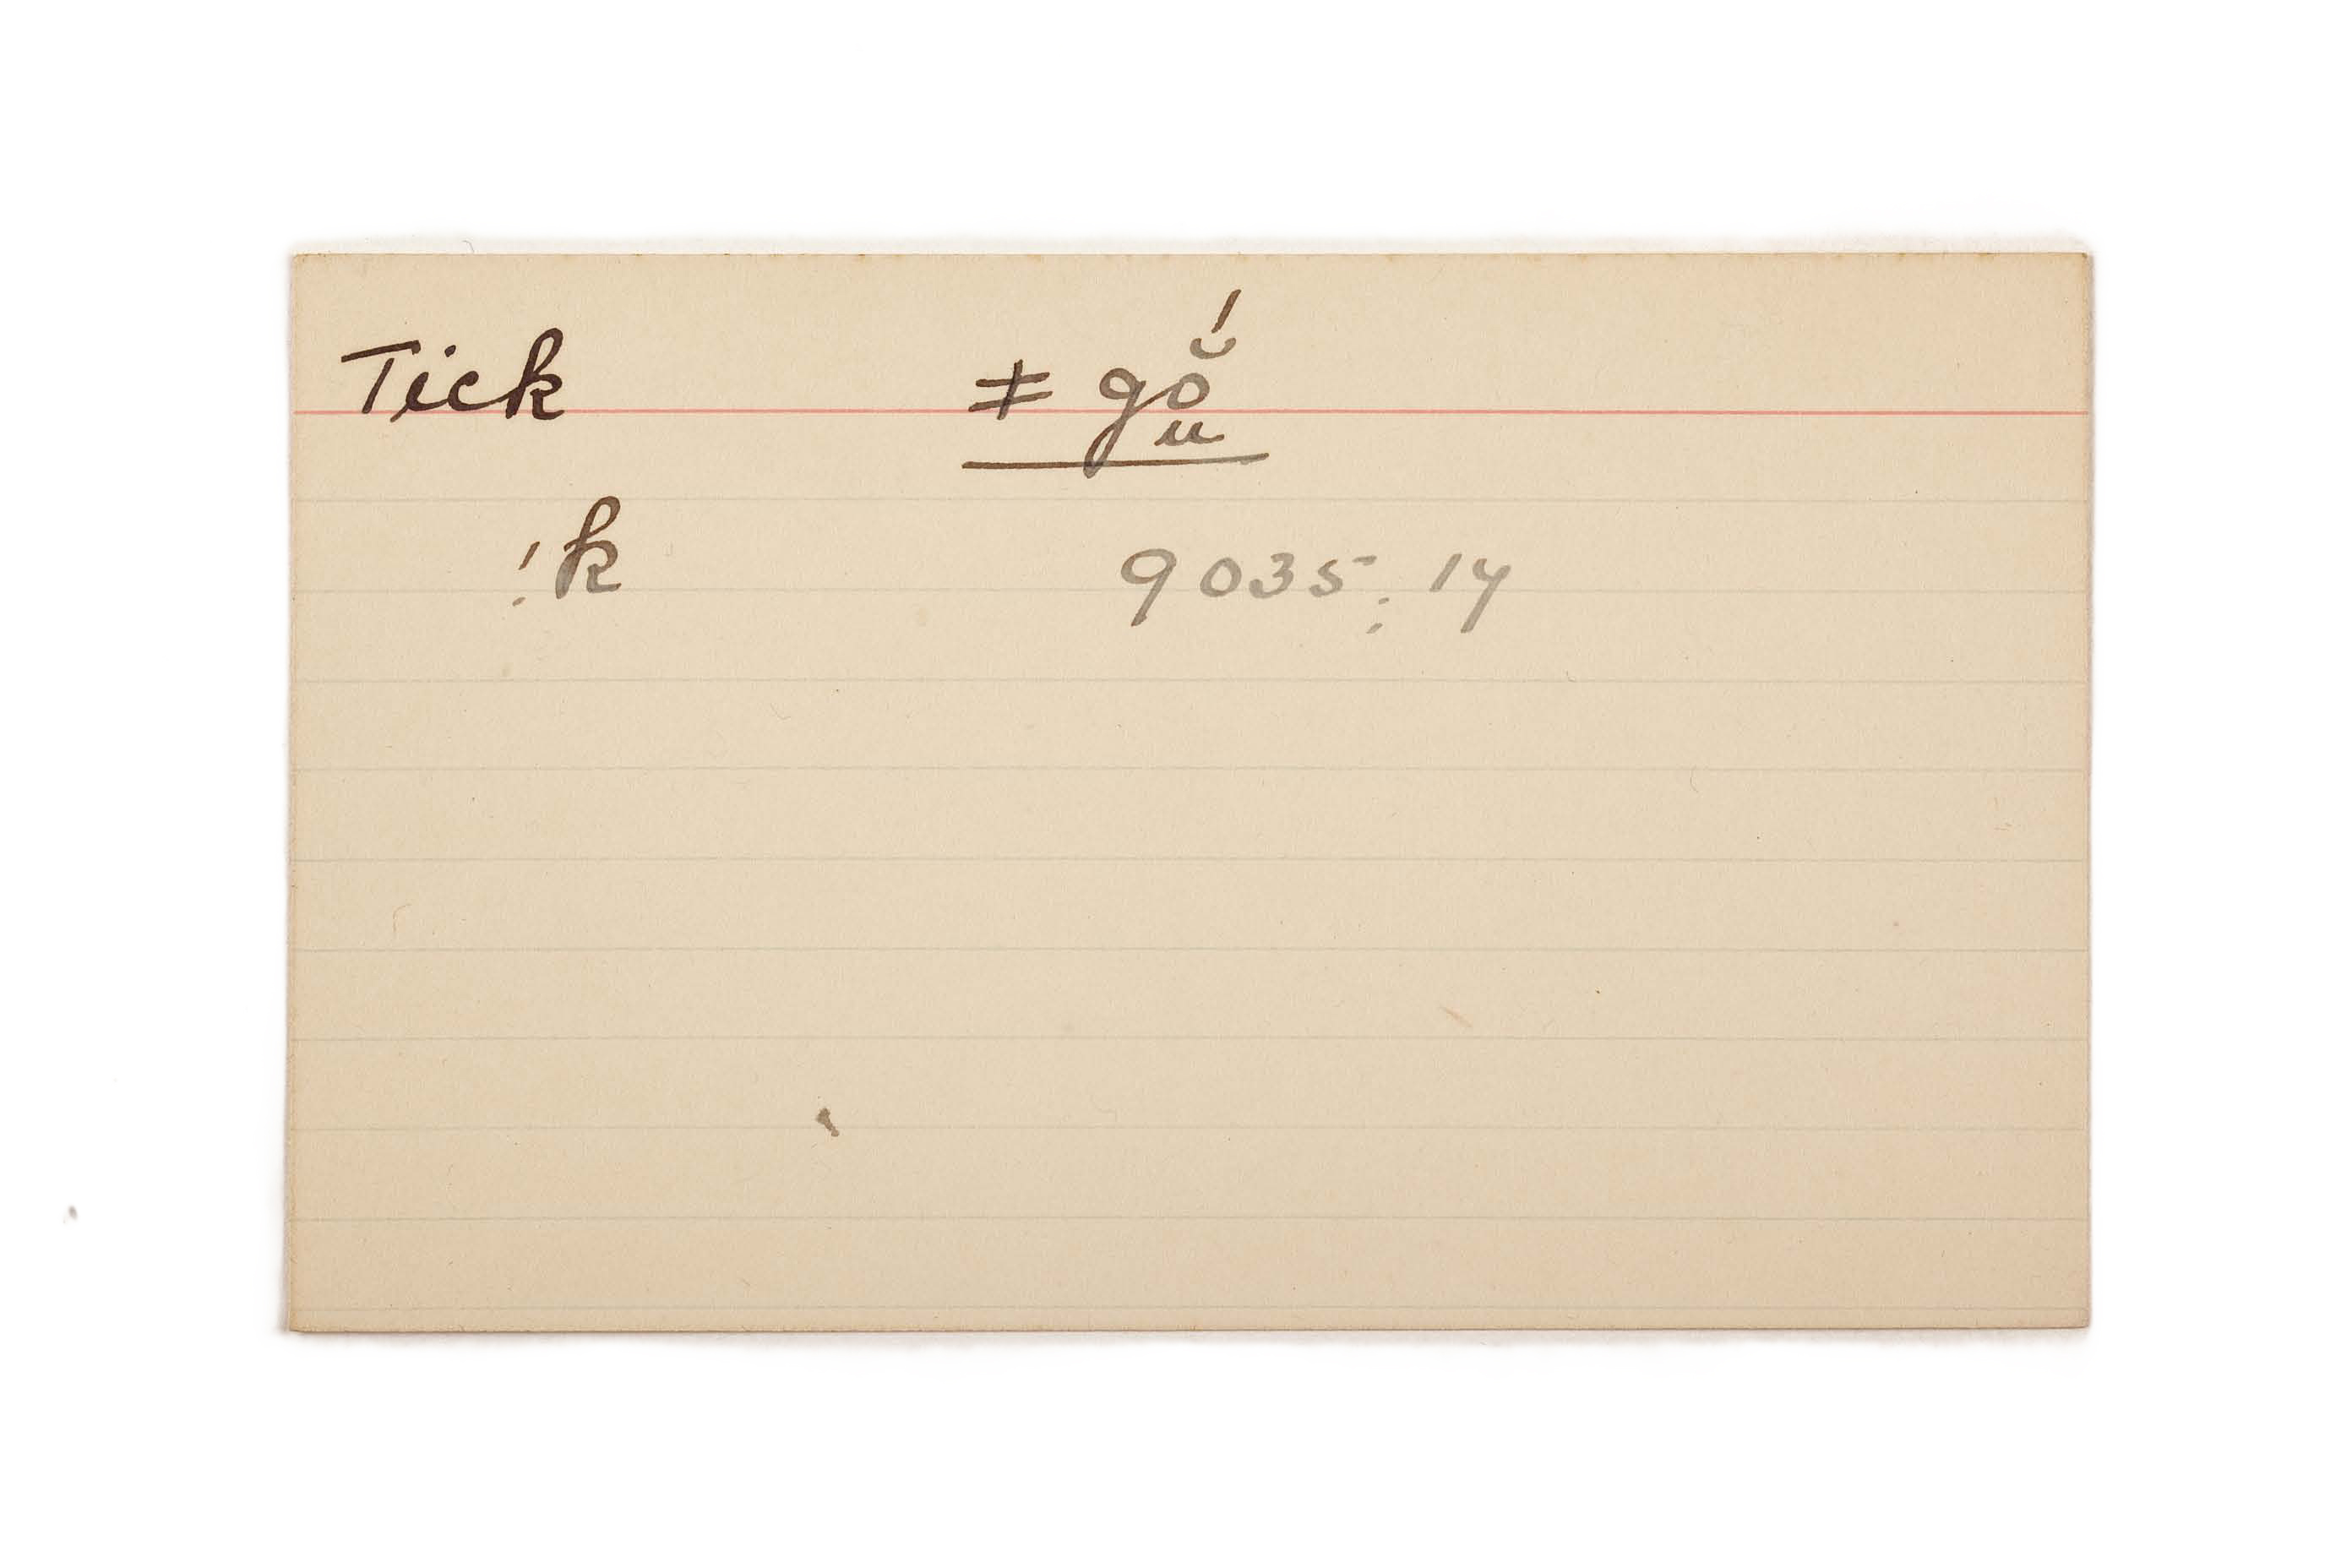 Tick ǂ gŏ́
u
!k 9035; 14